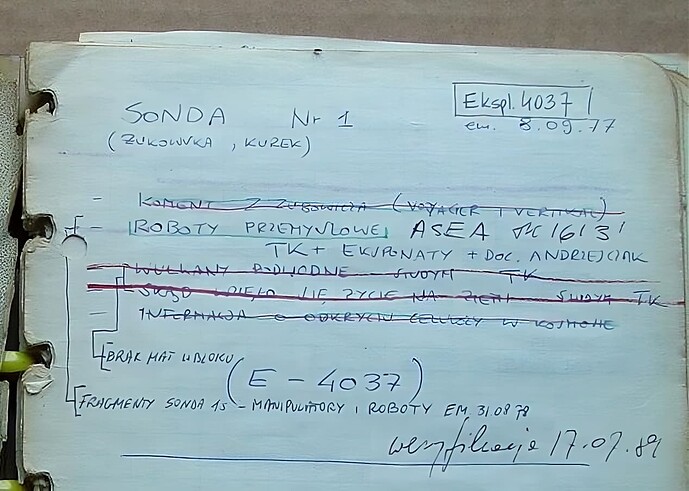 Ekspl. 4037
em. 8.09.77
SONDA Nr 1
(ŻUKOWSKA, KUREK)
- KOMENT Z ZUBOWICZA (VOYAGER I VERTIKAL)
- ROBOTY PRZEMYSŁOWE ASEA
TK + EKSPONATY + DOC. ANDRZEJCZAK
WULKANY PODWODNE TK
SKĄD WZIĘŁO SIĘ ŻYCIE NA ZIEMI TK
- INFORMACJA O ODKRYCIU CELULOZY W KOSMOSIE
BRAK MAT W BLOKU
(E - 4037)
FRAGMENTY SONDA 15 - MANIPULATORY I ROBOTY EM. 31.08.78
weryfikacja 17.07.89